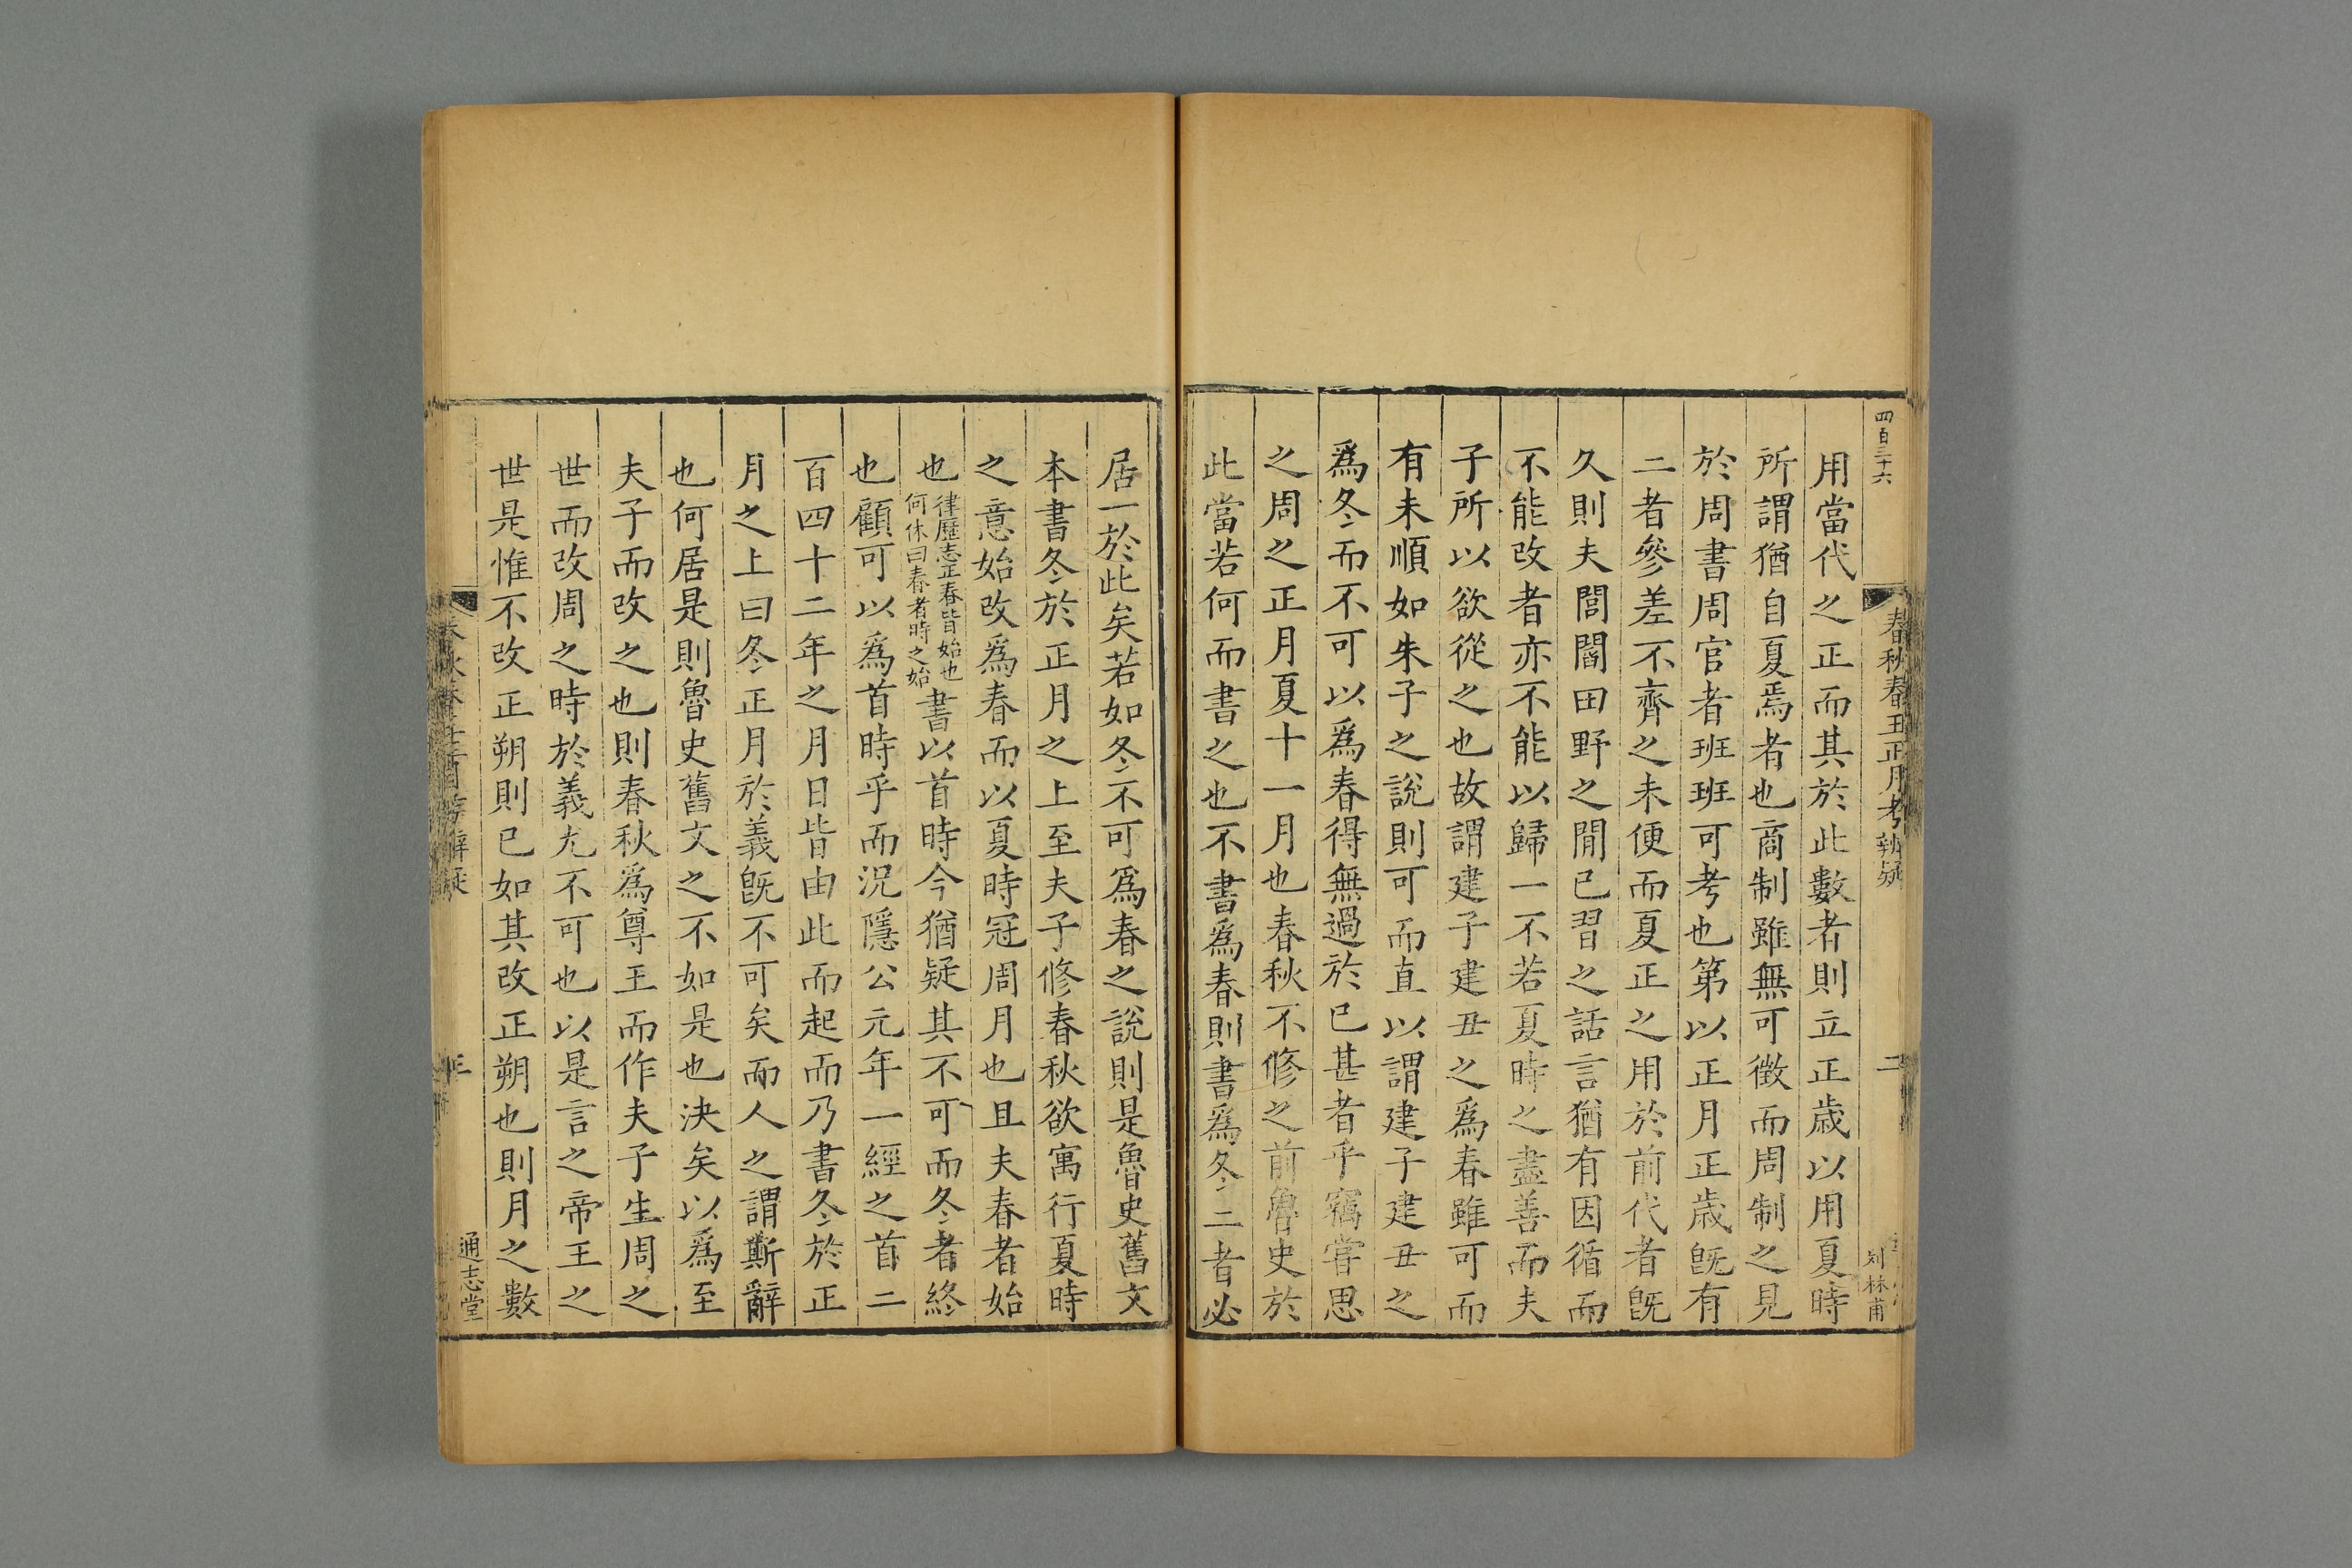 四百三十六
春秋春王正月考辨疑
二
刘林甫
用當代之正而其於此數者則立正歲以用夏時
所謂猶自夏焉者也商制雖無可徵而周制之見
於周書周官者班班可考也第以正月正歲旣有
二者參差不齊之未便而夏正之用於前代者旣
久則夫閭閻田野之閒已習之話言猶有因循而
不能改者亦不能以歸一不若夏時之盡善而夫
子所以欲從之也故謂建子建丑之爲春雖可而
有未順如朱子之說則可而直以謂建子建丑之
爲冬而不可以爲春得無過於已甚者乎竊嘗思
之周之正月夏十一月也春秋不修之前魯史於
此當若何而書之也不書爲春則書爲冬二者必
居一於此矣若如冬不可爲春之說則是魯史舊文
本書冬於正月之上至夫子修春秋欲寓行夏時
之意始改爲春而以夏時冠周月也且夫春者始
也律歷志正春皆始也何休曰春者時之始書以首時今猶疑其不可而冬者終
也顧可以爲首時乎而況隱公元年一經之首二
百四十二年之月日皆由此而起而乃書冬於正
月之上曰冬正月於義旣不可矣而人之謂斯辭
也何居是則魯史舊文之不如是也決矣以爲至
夫子而改之也則春秋爲尊王而作夫子生周之
世而改周之時於義尢不可也以是言之帝王之
世是惟不改正朔則已如其改正朔也則月之數
通志堂